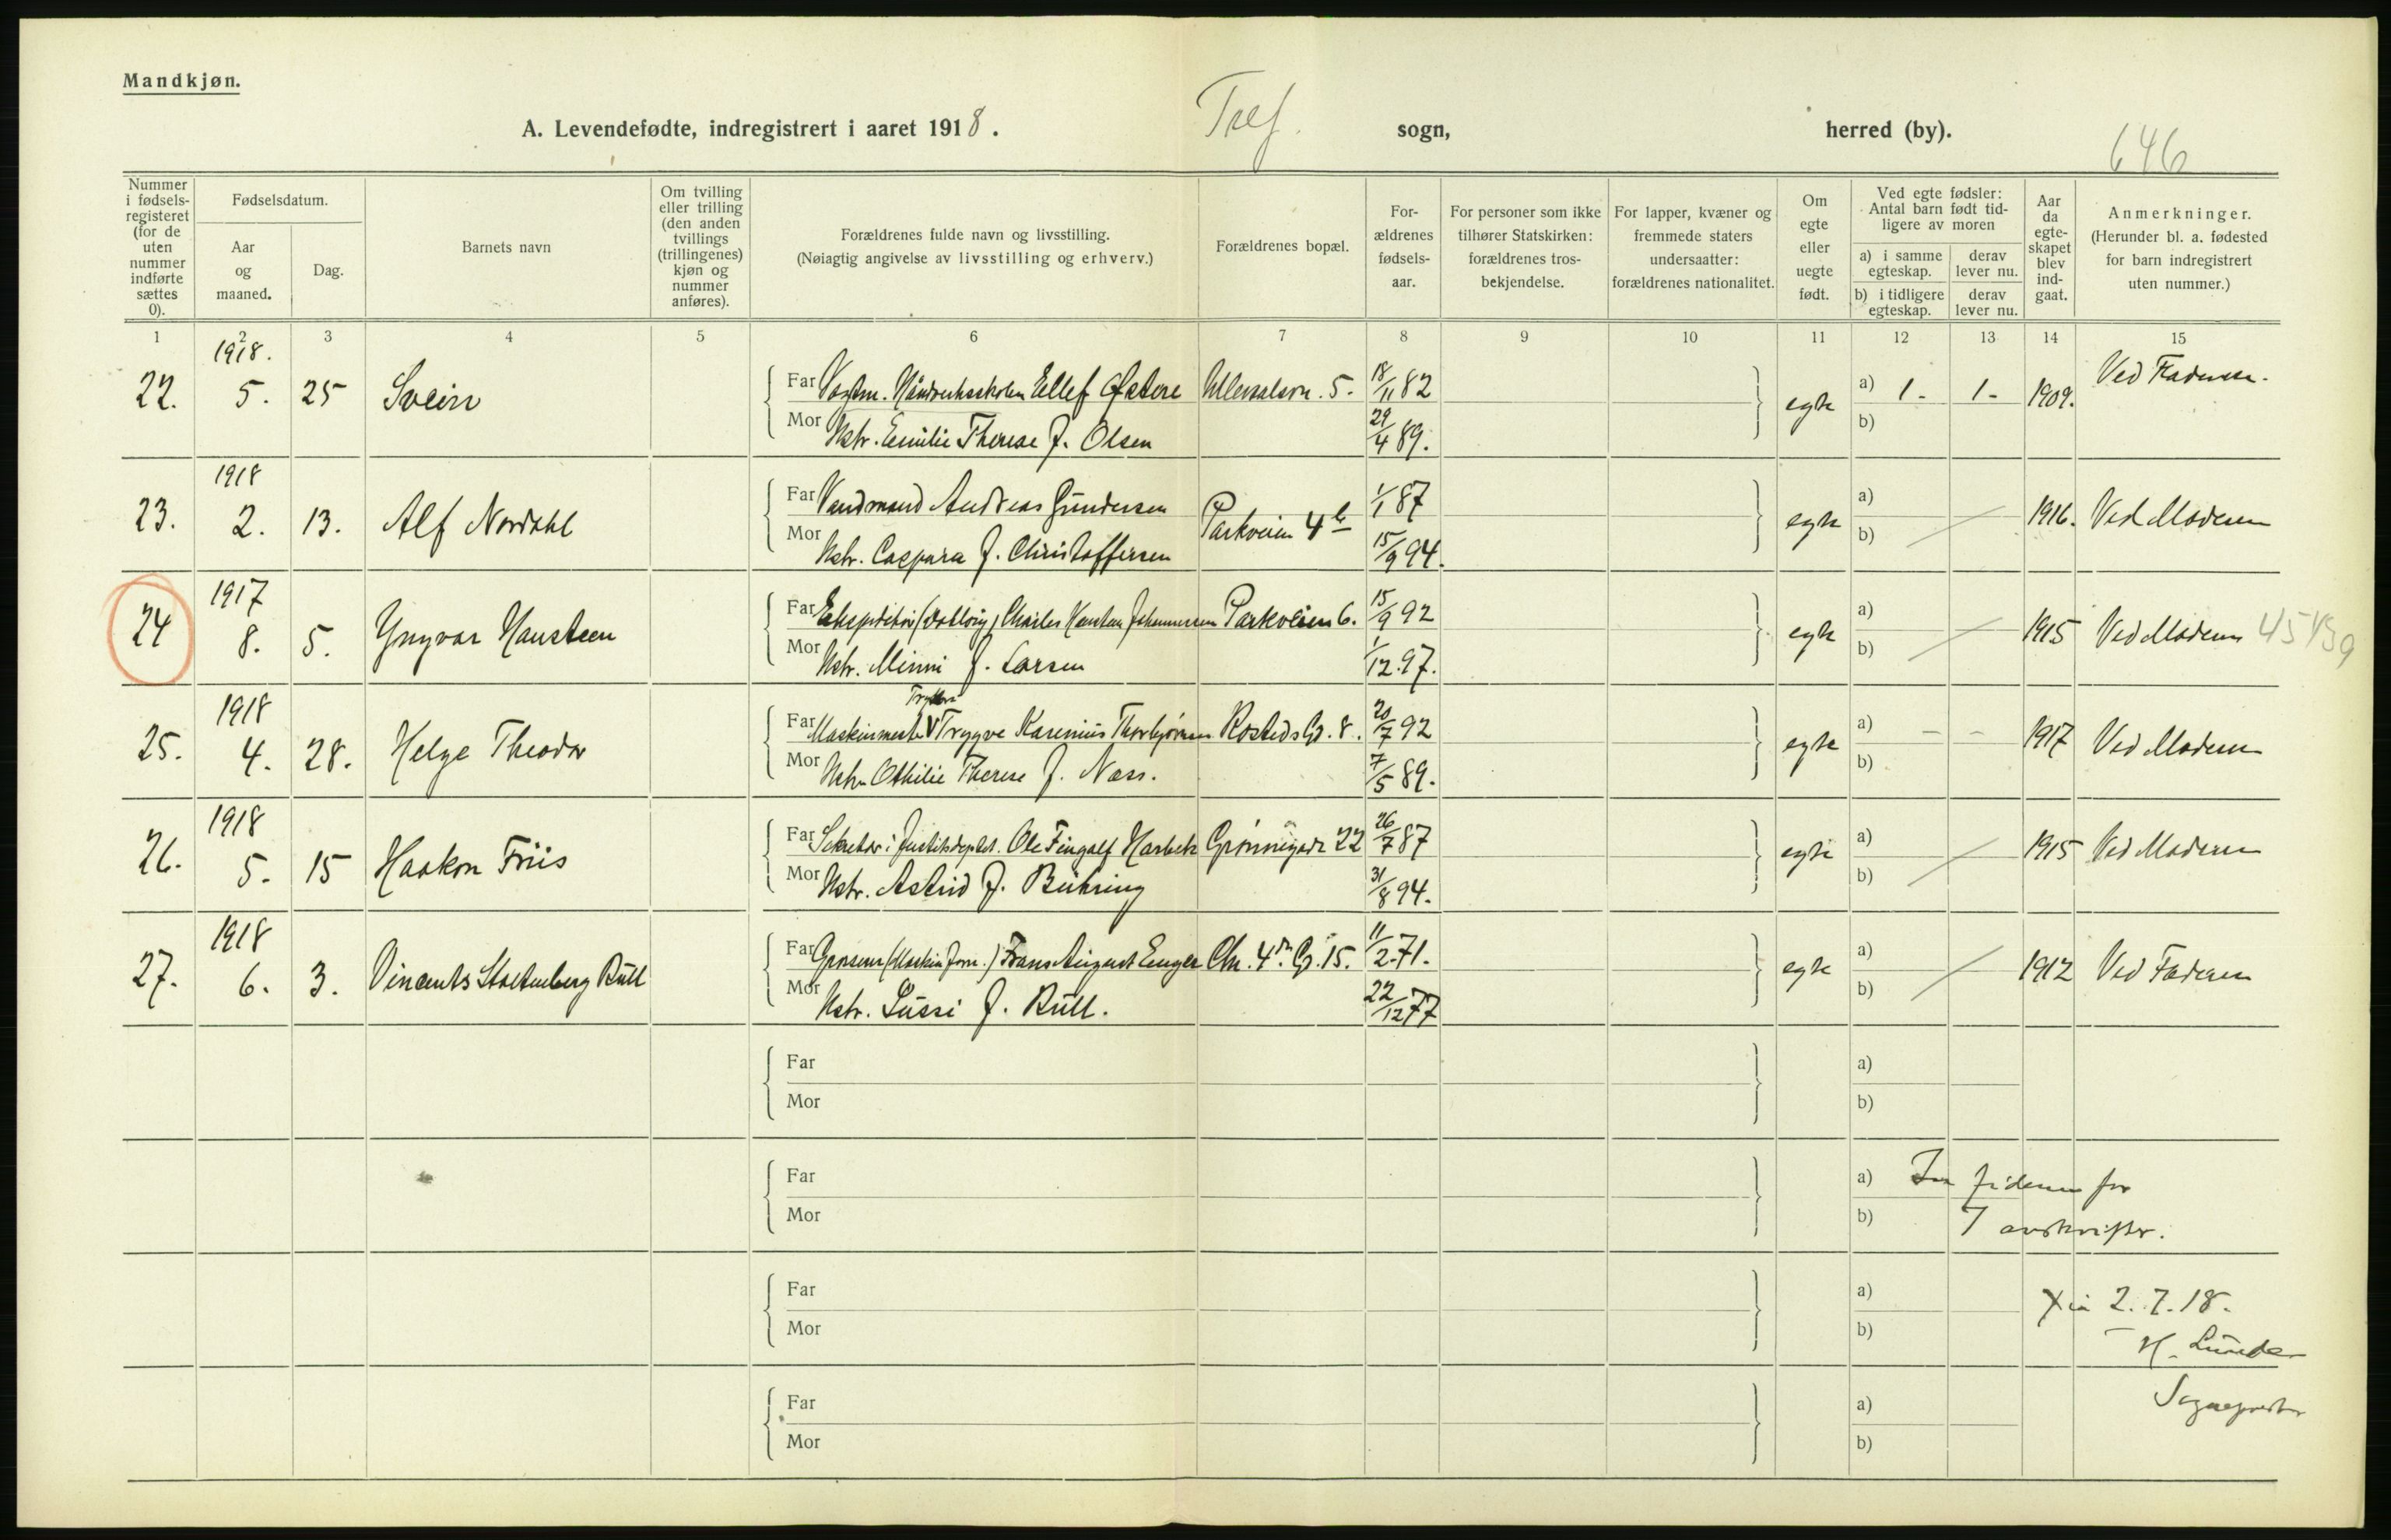 Mandkjøn.
A. Levendefødte, indregistrert i aaret 1918. Tref. sogn, herred (by).
646
Nummer i fødsels-registeret (for de uten nummer indførte sættes 0).
Fødselsdatum.
Aar og maaned.
Dag.
Barnets navn
Om tvilling eller trilling (den anden tvillings (trillingenes) kjøn og nummer anføres).
Forældrenes fulde navn og livsstilling.
(Nøiagtig angivelse av livsstilling og erhverv.)
Forældrenes bopæl.
For-ældrenes fødsels-aar.
For personer som ikke tilhører Statskirken: forældrenes tros-bekjendelse.
For lapper, kvæner og fremmede staters undersaatter: forældrenes nationalitet.
Om egte eller uegte født.
Ved egte fødsler: Antal barn født tid-ligere av moren
a) i samme egteskap.
derav lever nu.
b) i tidligere egteskap.
derav lever nu.
Aar da egte-skapet blev ind-gaat.
Anmerkninger.
(Herunder bl. a. fødested for barn indregistrert uten nummer.)
1 2 3 4 5 6 7 8 9 10 11 12 13 14 15
22. 1918. 5. 25 Svein
Far Vagtm. Haandverksskolen Ellef Østere Ullevalsvn. 5. 18/11 82 egte a) 1- 1- 1909. Ved Faderen.
Mor Hstr. Emilie Therese f. Olsen 29/4 89. b)
23. 1918 2. 13. Alf Nordahl
Far Vandmand Andreas Gundersen Parkveien 4b 1/1 87 egte a) 1916. Ved Moderen
Mor Hstr. Caspara f. Christoffersen 15/9 94. b)
24 1917 8. 5. Yngvar Hansteen
Far Charles Hansteen Johannessen Parkveien 6. 15/9 92 egte a) 1915 Ved Moderen
Mor Hstr. Minni f. Larsen 1/12 97. b)
25. 1918 4. 28. Helge Theodor
Far Maskinmester Trygve Karenius Thorbjørnsen Rosteds Gd. 8. 20/7 92 egte a) - - 1917 Ved Moderen
Mor Hstr. Othilie Therese f. Næss. 7/5 89. b)
26. 1918 5. 15 Haakon Friis
Far Sekretær i Justitsdeptet. Ole Fingalf Harbek Grønnegade 22 26/7 87 egte a) 1915 Ved Moderen
Mor Hstr. Astrid f. Bühring 31/8 94. b)
27. 1918 6. 3. Vincents Stoltenberg Bull
Far Grosserer (Maskinforr.) Frans August Enger Chr. 4des G. 15. 11/2 71. egte a) 1912 Ved Faderen
Mor Hstr. Sussi f. Bull. 22/12 77 b)
Far a)
Mor b)
Far a) for
Mor b) 7 avskrifter.
Far a) Xia 2.7.18.
Mor b) H. Lunde
Far a) Sogneprest
Mor b)